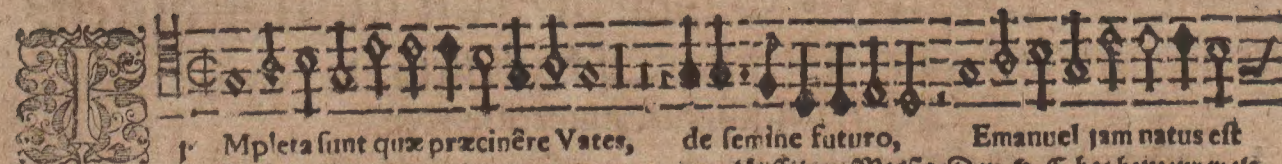 IMpleta sunt quæ præcinêre Vates, de semine futuro, Emanuel jam natus est